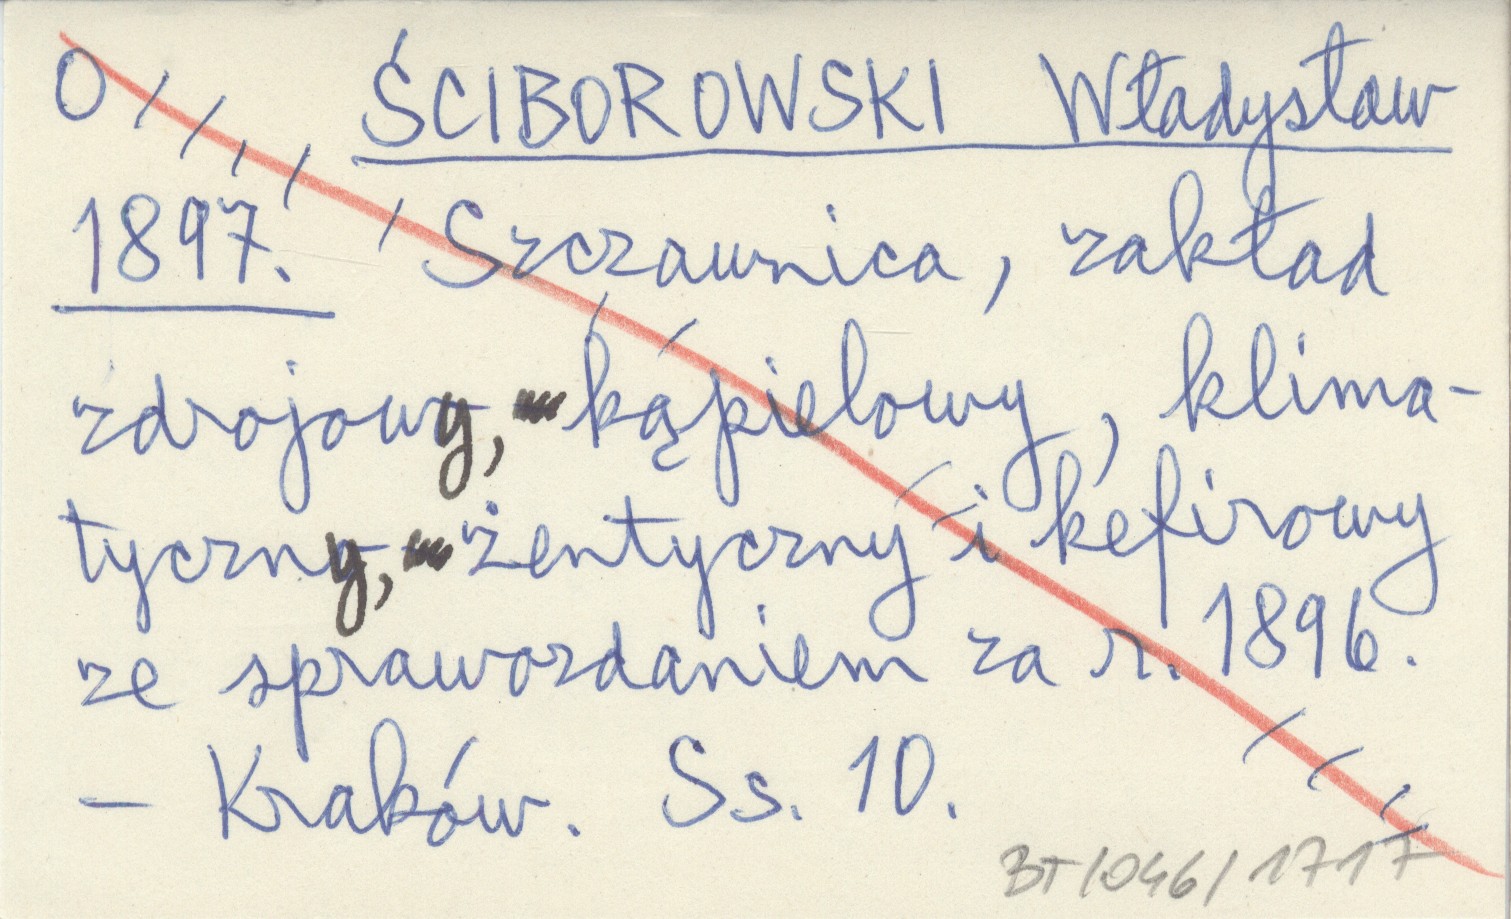 O ŚCIBOROWSKI Władysław
1897. Szczawnica, zakład
zdrojowy, kąpielowy, klima-
tyczny, żentyczny i kefirowy
ze sprawozdaniem za r. 1896.
– Kraków. Ss. 10.
BT/046/1717